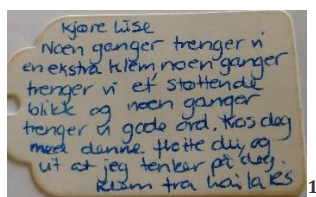 Kjære Lise
Noen ganger trenger vi
en ekstra klem, noen ganger
trenger vi et støttende
blikk og noen ganger
trenger vi gode ord. Kos deg
med denne flotte du, og
vit at jeg tenker på deg.
Klem fra
1